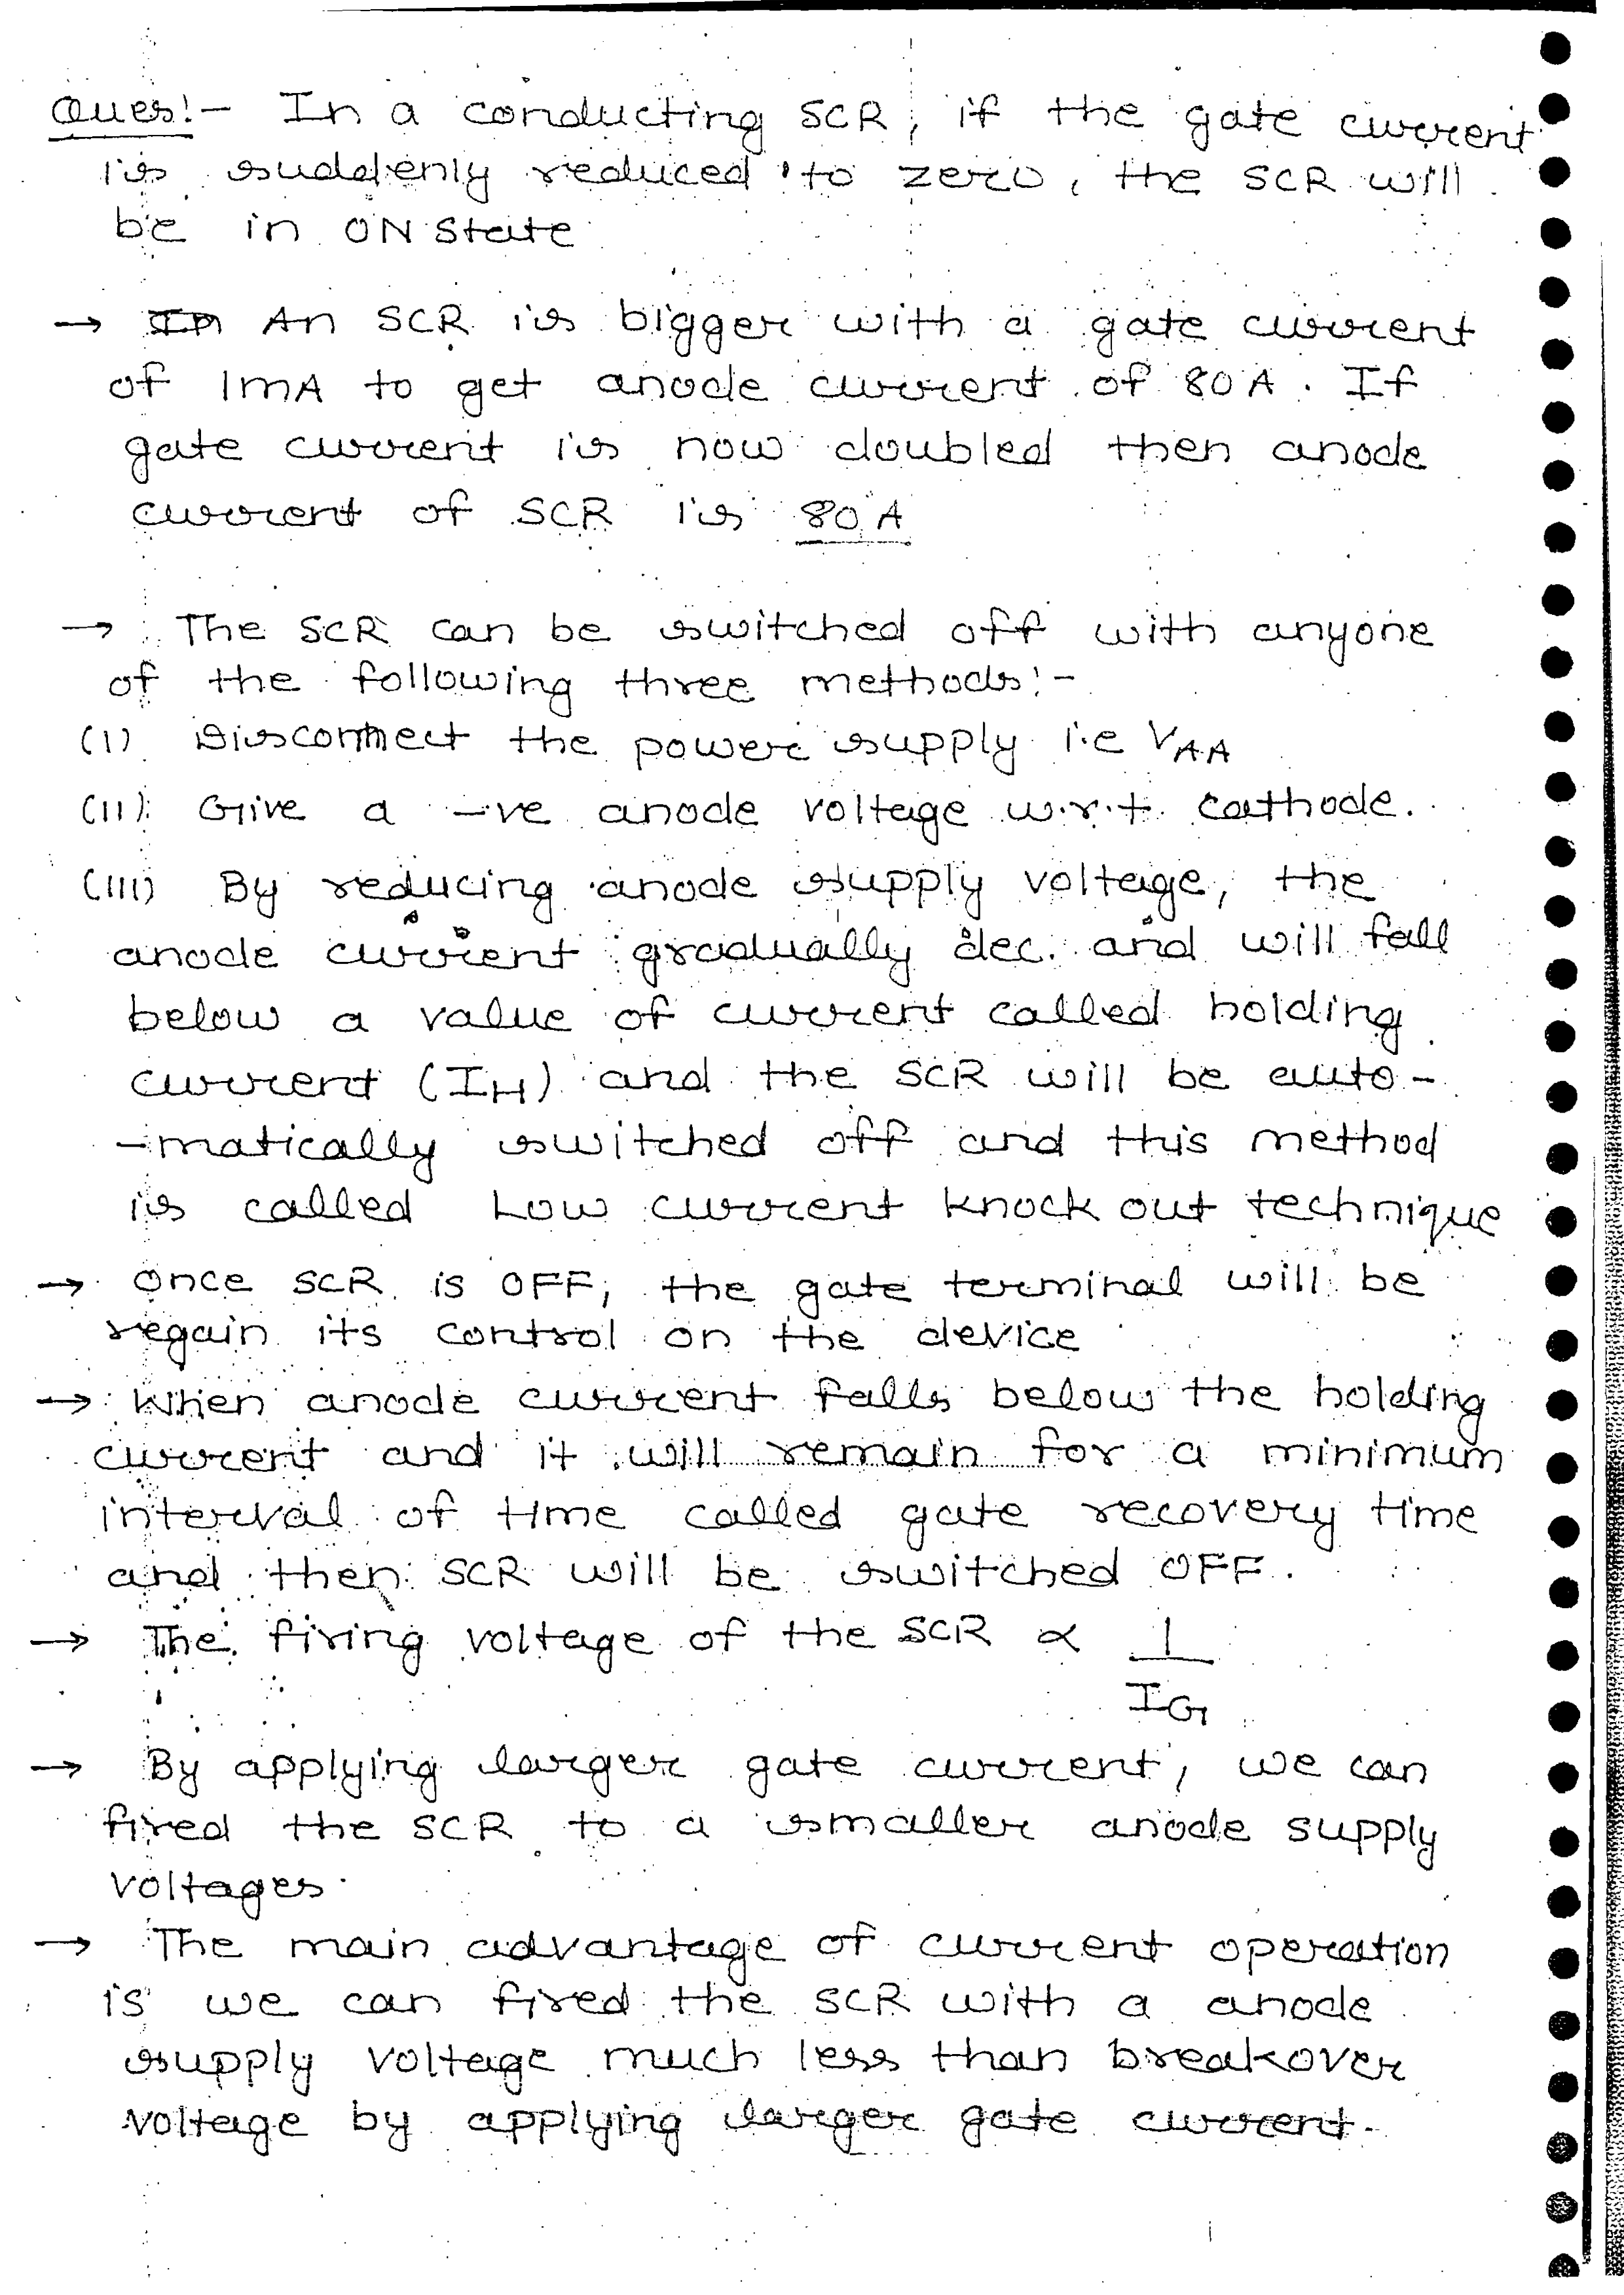 Ques:- In a conducting SCR, if the gate current
is suddenly reduced to zero, the SCR will
be in ON State
→ An SCR is bigger with a gate current
of 1mA to get anode current of 80A. If
gate current is now doubled then anode
current of SCR is 80A
→ The SCR can be switched off with anyone
of the following three methods:-
(I) Disconnect the power supply i.e VAA
(II) Give a -ve anode voltage w.r.t cathode.
(III) By reducing anode supply voltage, the
anode current gradually dec. and will fall
below a value of current called holding
current (IH) and the SCR will be auto-
-matically switched off and this method
is called Low current knock out technique
→ Once SCR is OFF, the gate terminal will be
regain its control on the device
→ When anode current falls below the holding
current and it will remain for a minimum
interval of time called gate recovery time
and then SCR will be switched OFF.
→ The firing voltage of the SCR ∝ 1
IG
→ By applying larger gate current, we can
fired the SCR to a smaller anode supply
voltages.
→ The main advantage of current operation
is we can fired the SCR with a anode
supply voltage much less than breakover
voltage by applying larger gate current.